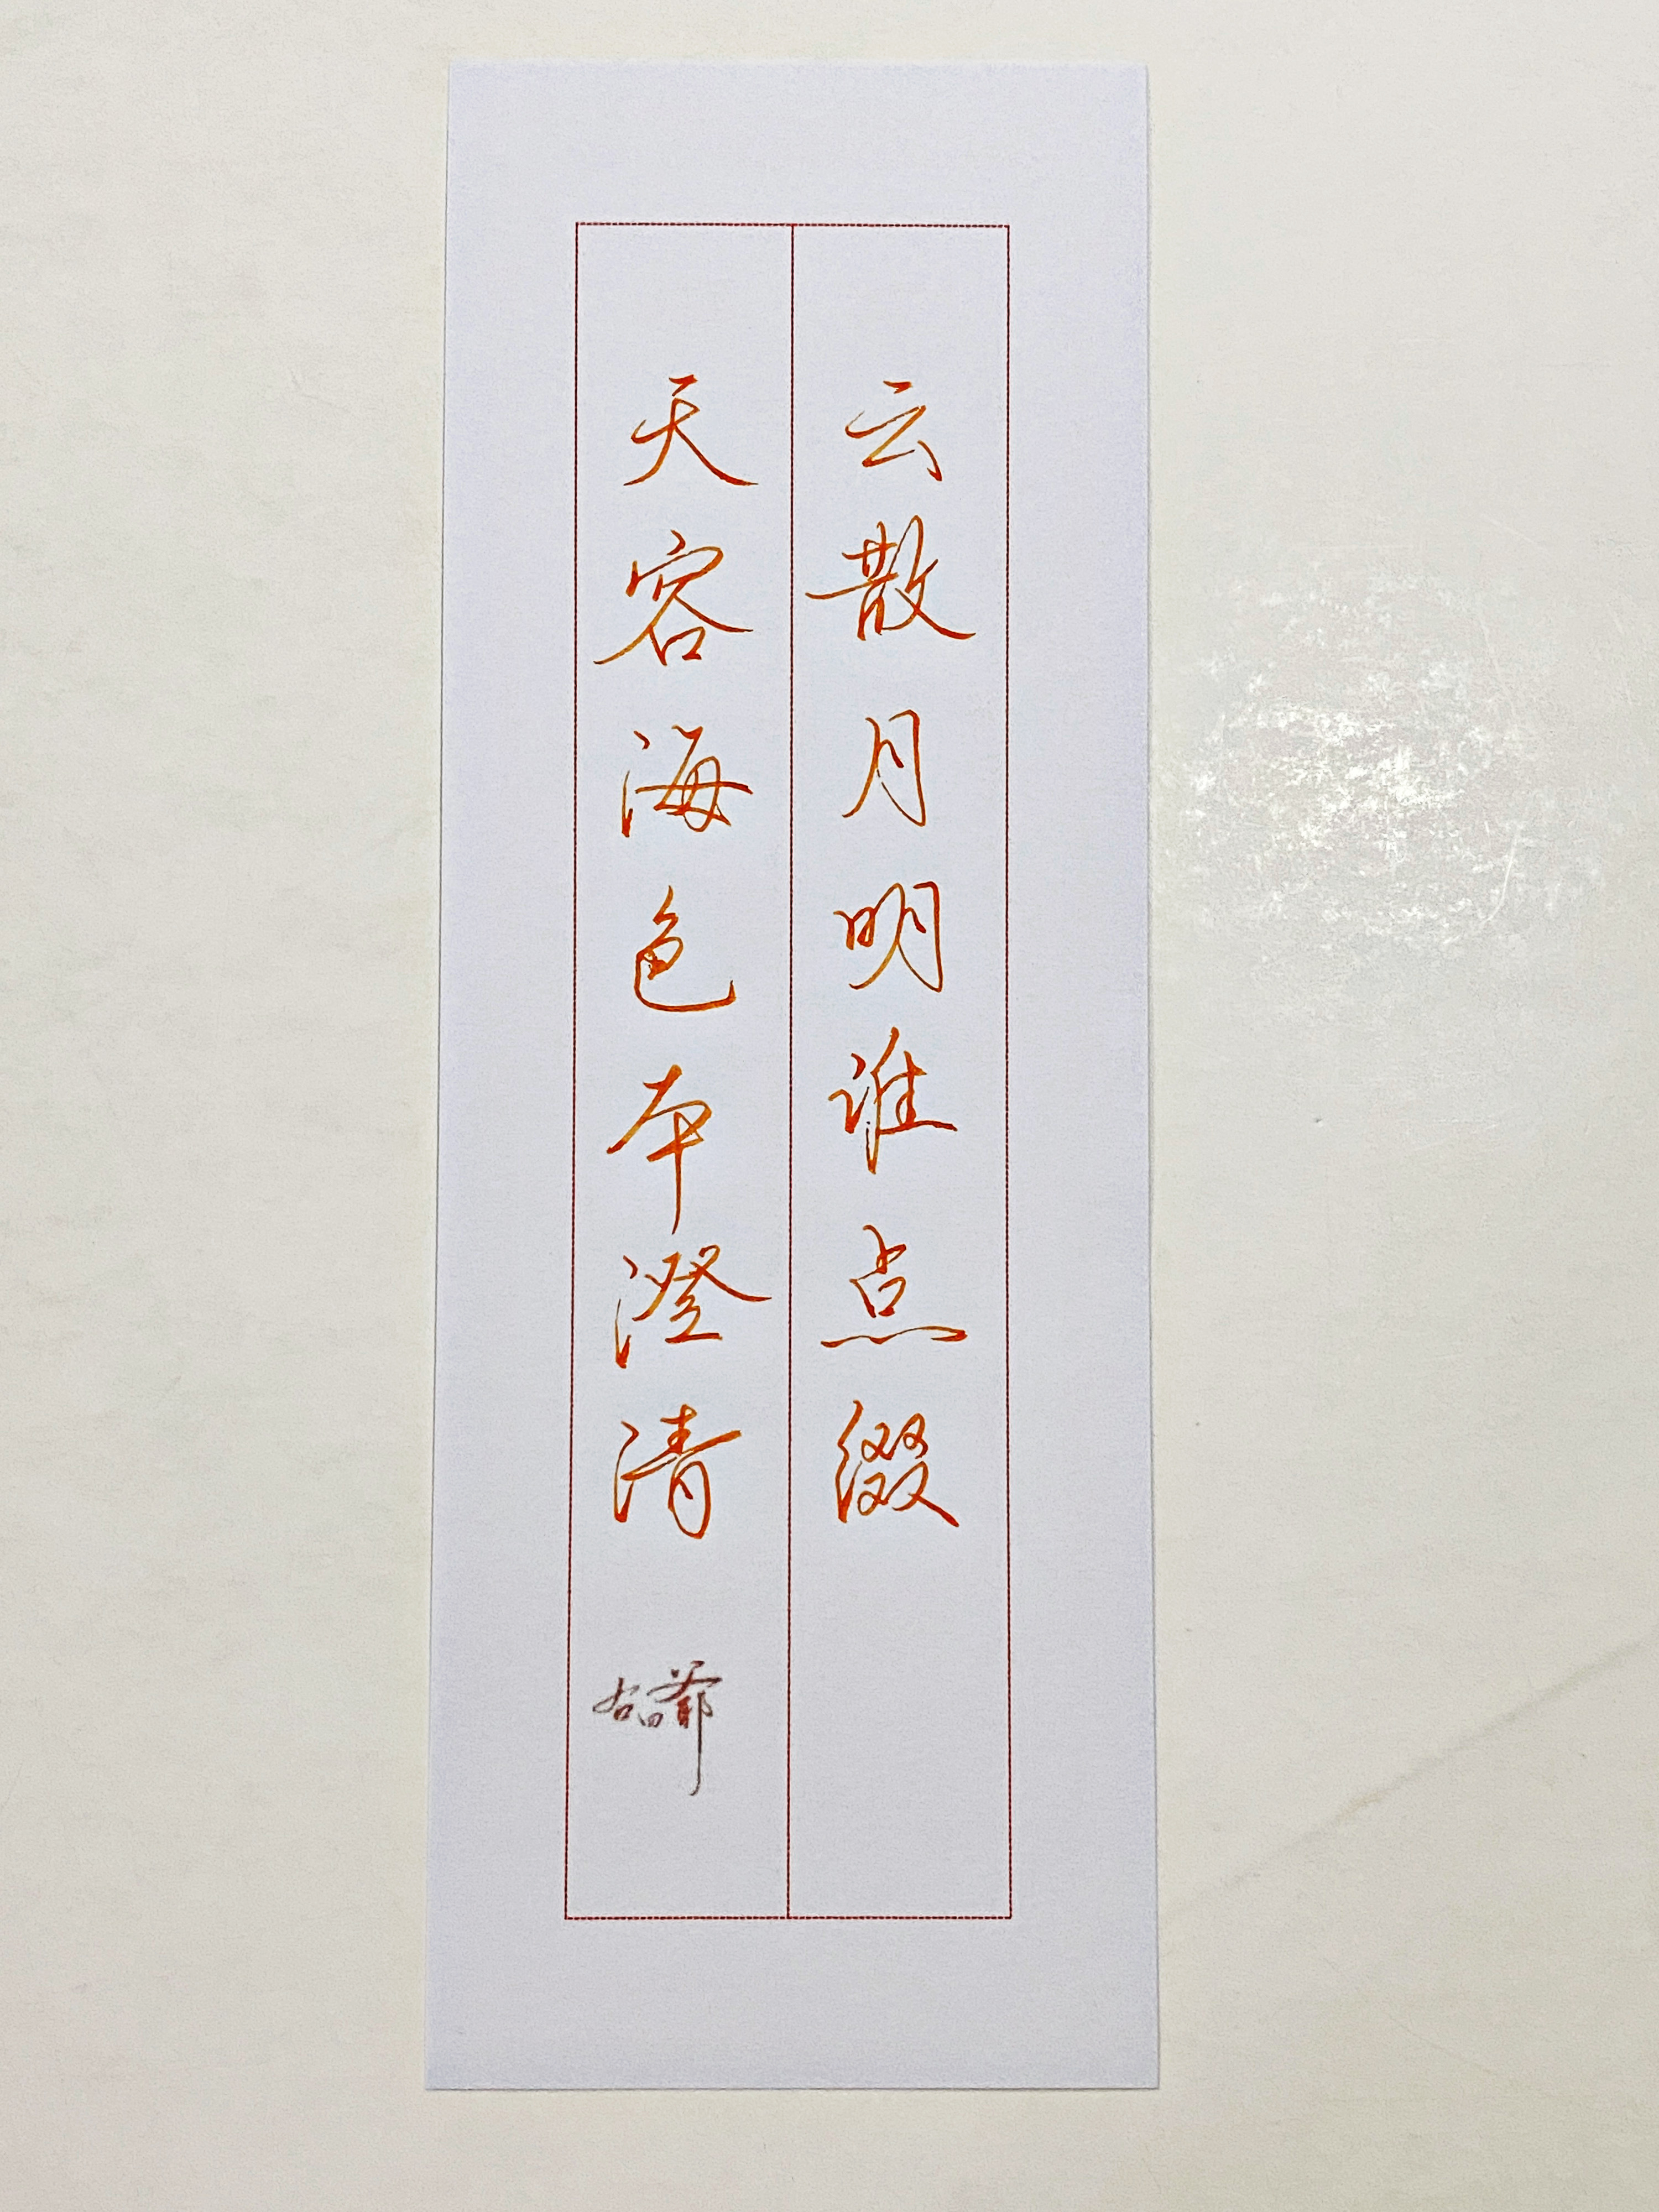 云散月明谁点缀
天容海色本澄清